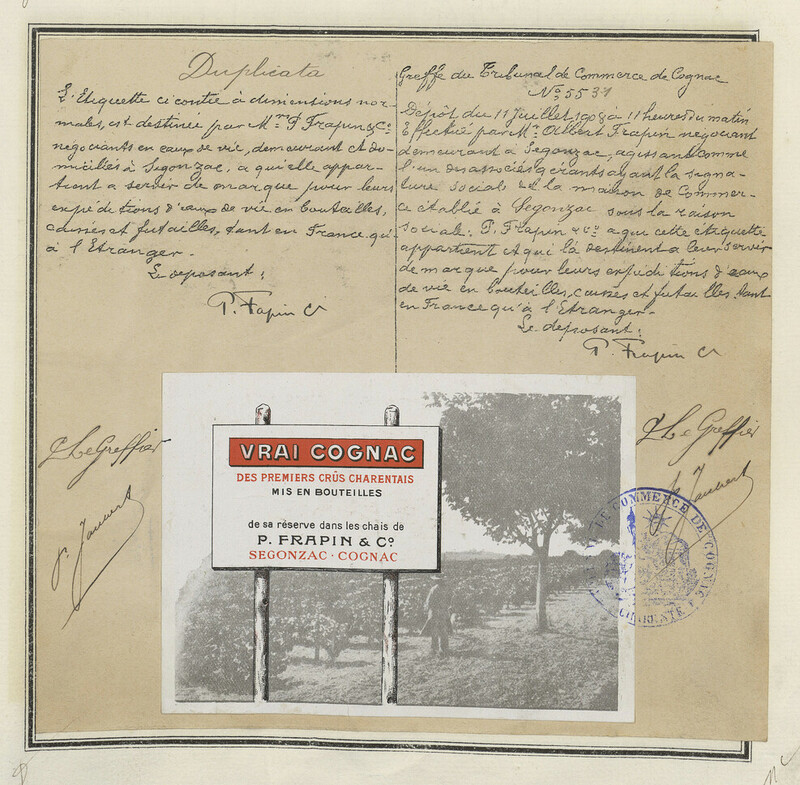 Duplicata
L'Etiquette ci contre à dimensions nor-
males, est destinée par Mrs P. Frapin & Co
negociants en eaux de vie, demeurant et do-
miciliés à Segonzac, a qu'elle appar-
tient a servir de marque pour leurs
expéditions d'eaux de vie en bouteilles,
caisses et futailles, tant en France qu'
à l'Etranger.
Le deposant:
P. Frapin Co
Greffe du Tribunal de Commerce de Cognac
No 5531
Dépôt du 11 Juillet à 11 heures du matin
Effectué par Mr Albert Frapin negociant
demeurant à Segonzac, agissant comme
l'un des associés gérants ayant la signa-
ture social et la maison de Commer-
ce établie à Segonzac sous la raison
sociale: P. Frapin & Co a que cette étiquette
appartient et qui la destinent a leur servir
de marque pour leurs expéditions d'eaux
de vie en bouteilles, caisses et futailles, tant
en France qu'à l'Etranger.
Le deposant:
P. Frapin Co
Le Greffier
Le Greffier
VRAI COGNAC
DES PREMIERS CRÛS CHARENTAIS
MIS EN BOUTEILLES
de sa réserve dans les chais de
P. FRAPIN & Co
SEGONZAC · COGNAC
DE COMMERCE DE COGNAC
CHARENTE